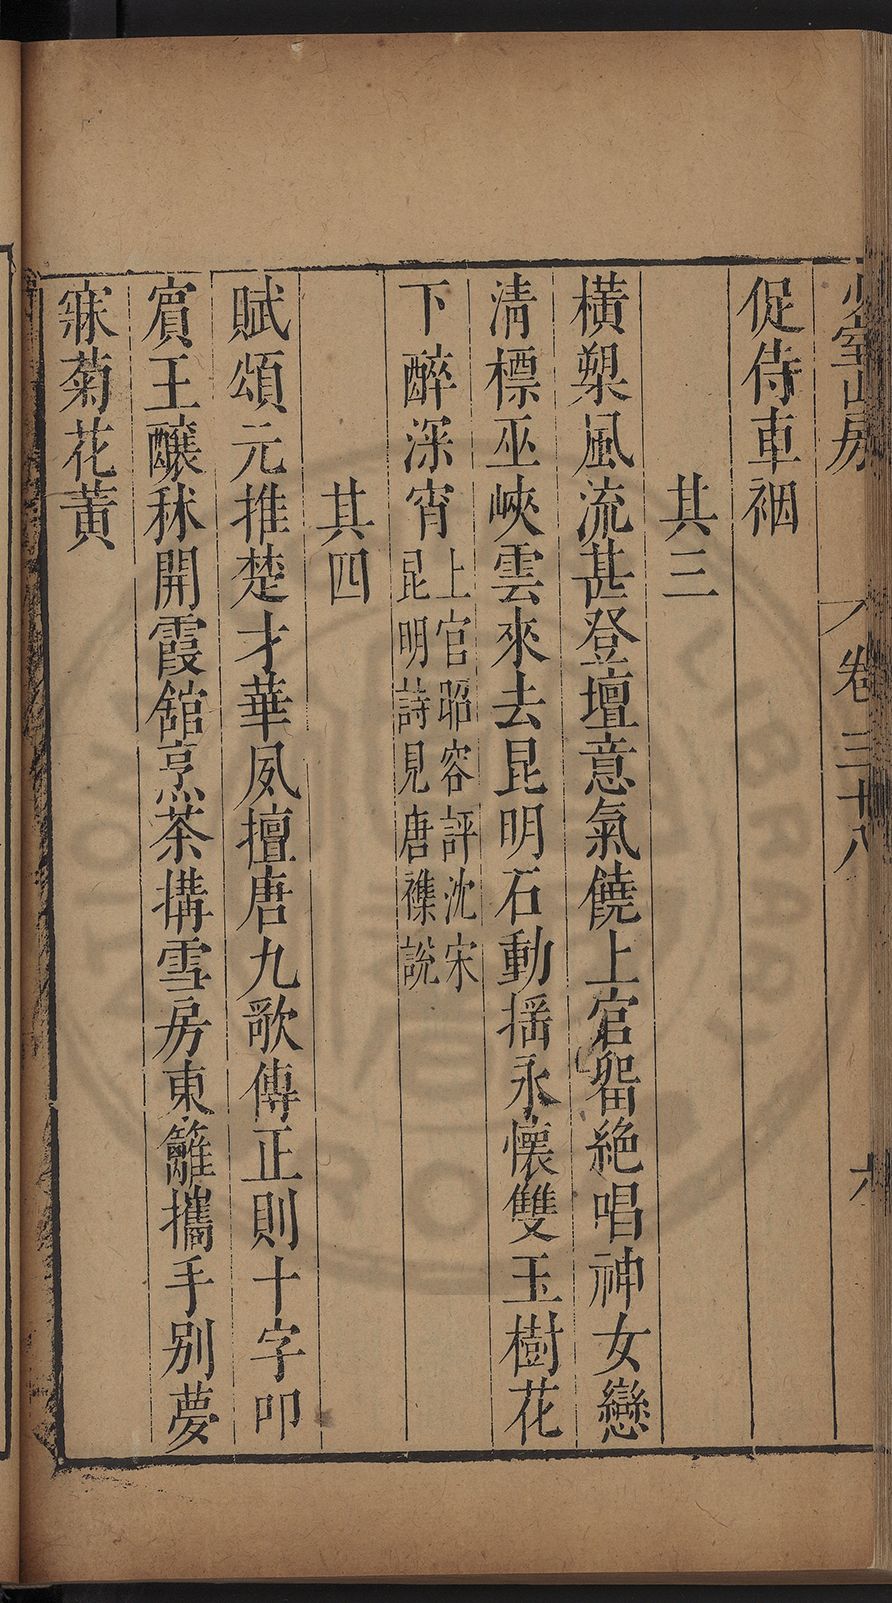 少室山房 卷三十八 六
促侍車裀
其三
橫槊風流甚登壇意氣饒上官留絶唱神女戀
淸標巫峽雲來去昆明石動搖永懷雙玉樹花
下醉深宵上官昭容評沈宋
昆明詩見唐襍說
其四
賦頌元推楚才華夙擅唐九歌傳正則十字叩
賓王釀秫開霞館烹茶搆雪房東籬攜手別夢
寐菊花黃